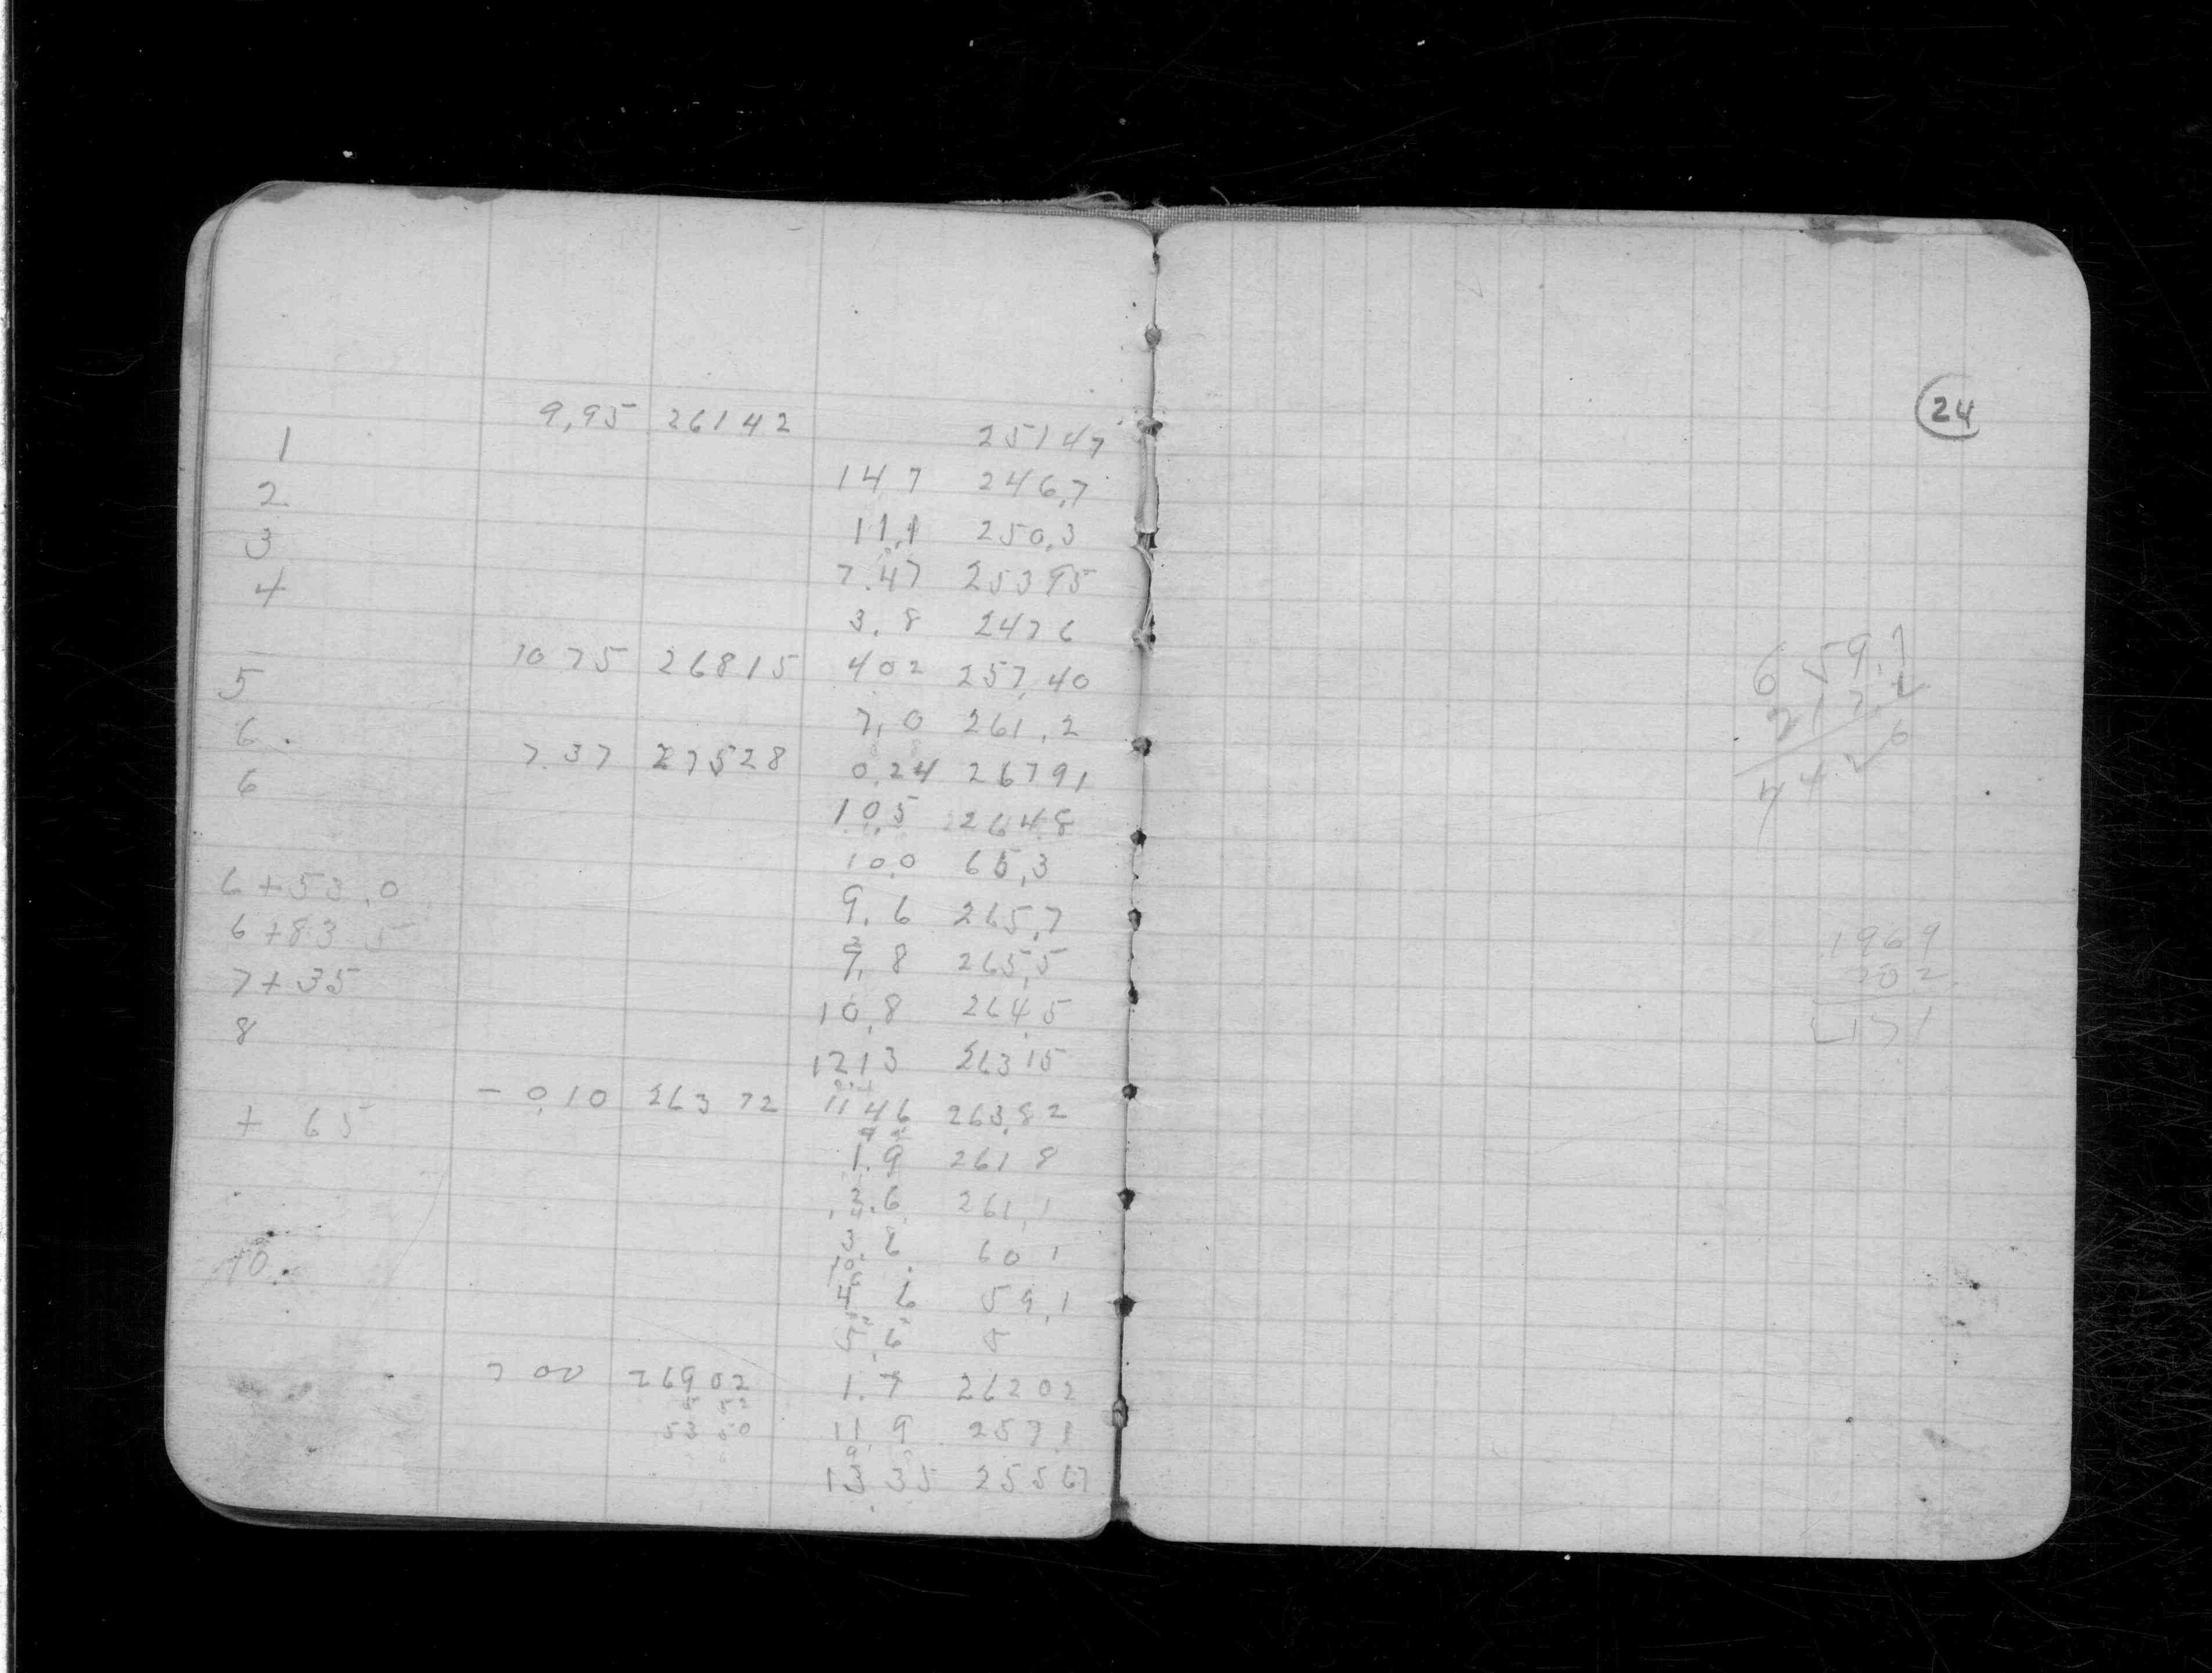 9,95 26142
1 25147
2 14 7 246,7
3 11,1 250,3
4 7.47 25395
3.8 2476
10 75 26815 402 257,40
5
7,0 261,2
6.
7.37 27528 0,24 26791
6
10,5 2648
10,0 65,3
6+53.0
9.6 265,7
6+83 5
9,8 265,5
7+35
10,8 264,5
8
1213 26315
- 0,10 26372 1146 263,82
+ 65
1.9 261 8
3.6 261,1
3.6 60 1
10.
4 6 59,1
5,6
7 00 26902 1.7 26202
53 50 11 9 257 1
13 35 255 67
24
6 59.1
217.
1969
202